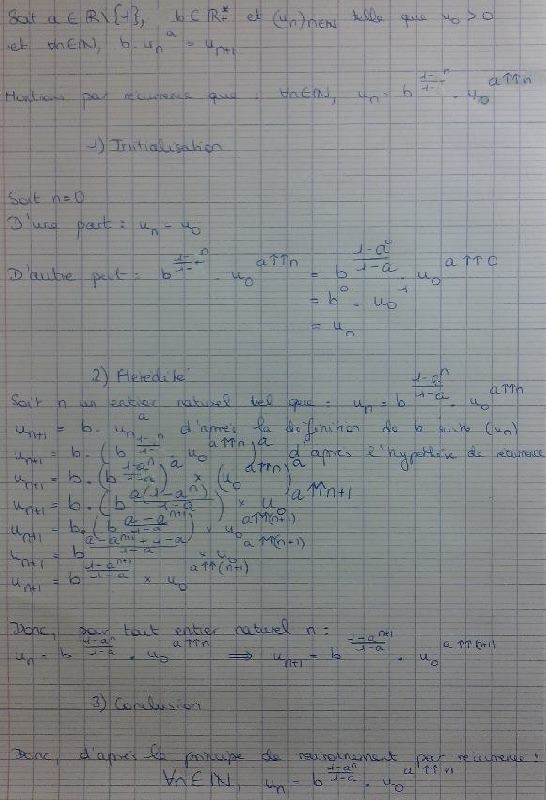 Soit a ∈ ℝ\{1}, b ∈ ℝ*₊ et (uₙ)ₙ∈ℕ telle que u₀ > 0
et ∀n∈ℕ, b·uₙ^a = uₙ₊₁
Montrons par récurrence que : ∀n∈ℕ, uₙ = b^((1-a^n)/(1-a)) · u₀^(a↑↑n)
1) Initialisation
Soit n=0
D'une part : uₙ = u₀
D'autre part : b^((1-a^n)/(1-a)) · u₀^(a↑↑n) = b^((1-a^0)/(1-a)) · u₀^(a↑↑0)
= b^0 · u₀^1
= uₙ
2) Hérédité
Soit n un entier naturel tel que : uₙ = b^((1-a^n)/(1-a)) · u₀^(a↑↑n)
uₙ₊₁ = b · uₙ^a d'après la définition de la suite (uₙ)
uₙ₊₁ = b · (b^((1-a^n)/(1-a)) · u₀^(a↑↑n))^a d'après l'hypothèse de récurrence
uₙ₊₁ = b · (b^((1-a^n)/(1-a)))^a × (u₀^(a↑↑n))^a
uₙ₊₁ = b · (b^(a(1-a^n)/(1-a))) × u₀^(a↑↑n+1)
uₙ₊₁ = b · (b^((a-a^(n+1))/(1-a))) × u₀^(a↑↑(n+1))
uₙ₊₁ = b^((a-a^(n+1)+1-a)/(1-a)) × u₀^(a↑↑(n+1))
uₙ₊₁ = b^((1-a^(n+1))/(1-a)) × u₀^(a↑↑(n+1))
Donc, pour tout entier naturel n :
uₙ = b^((1-a^n)/(1-a)) · u₀^(a↑↑n) ⟹ uₙ₊₁ = b^((1-a^(n+1))/(1-a)) · u₀^(a↑↑(n+1))
3) Conclusion
Donc, d'après le principe de raisonnement par récurrence :
∀n∈ℕ, uₙ = b^((1-a^n)/(1-a)) · u₀^(a↑↑n)